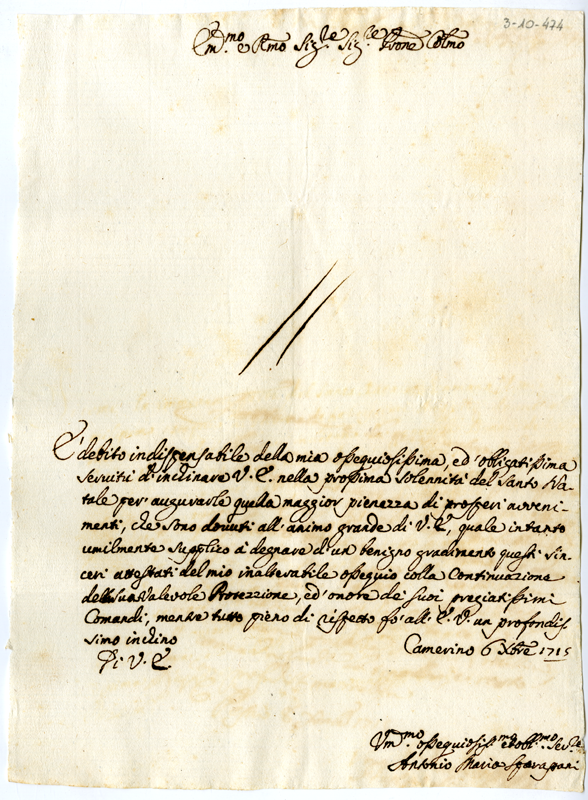 3-10-474
Em.mo e Rmo Sig.re Sig.re Prone Colmo
E' debito indispensabile della mia ossequiosissima, ed' obligatissima
servitù d'inclinare V. E. nella prossima solennità del Santo Na-
tale per' augurarle quella maggior pienezza di prosperi avveni-
menti, che sono dovuti all' animo grande di V. E., quale intanto
umilmente supplico à degnare d'un benigno gradimento questi sin-
ceri attestati del mio inalterabile ossequio colla Continuazione
della sua Valevole Protezzione, ed' onore dei suoi pregiatissimi
Comandi, mentre tutto pieno di rispetto fò all' E. V. un profondis-
simo inclino
Camerino 6 Xbre 1715
Di V. E.
Um.mo ossequiosis.mo et obl.mo Ser.re
Antonio Maria Sparapani